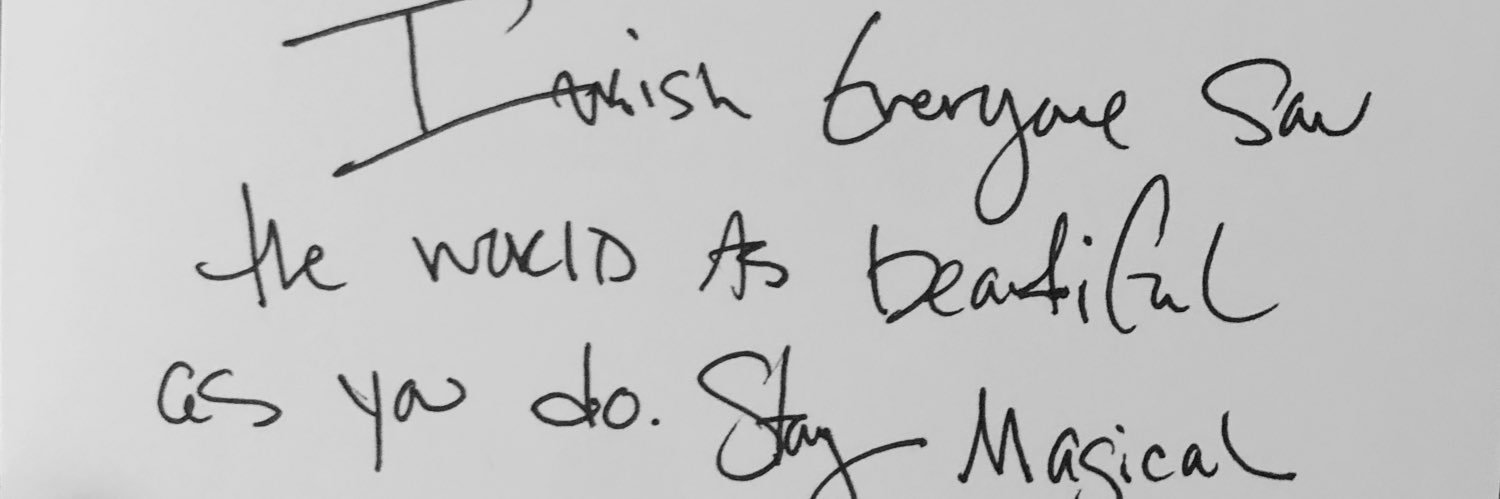 I wish Everyone Saw
the world As beautiful
as you do. Stay Magical